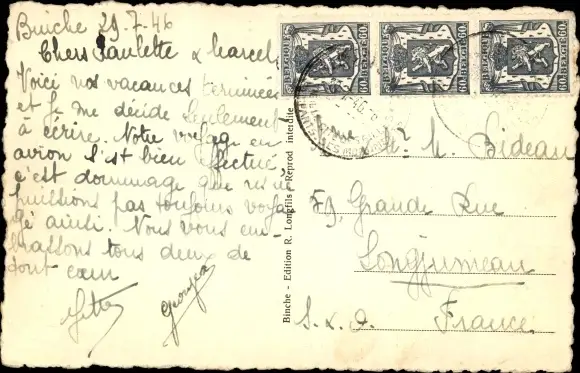 Binche 29-7-46
Chers Paulette & Marcel,
Voici nos vacances terminées
et je me décide seulement
à écrire. Notre voyage en
avion s'est bien effectué,
c'est dommage que ns ne
puissions pas toujours voya
gé ainsi. Nous vous em-
brassons tous deux de
tout cœur
Georges
BELGIQUE
60
BELGIE
BELGIQUE
60
BELGIE
BELGIQUE
60
BELGIE
Binche - Edition R. Longfils - Reprod interdite
Mr M. Bideau
59, Grande Rue
Longjumeau
S. & O. France